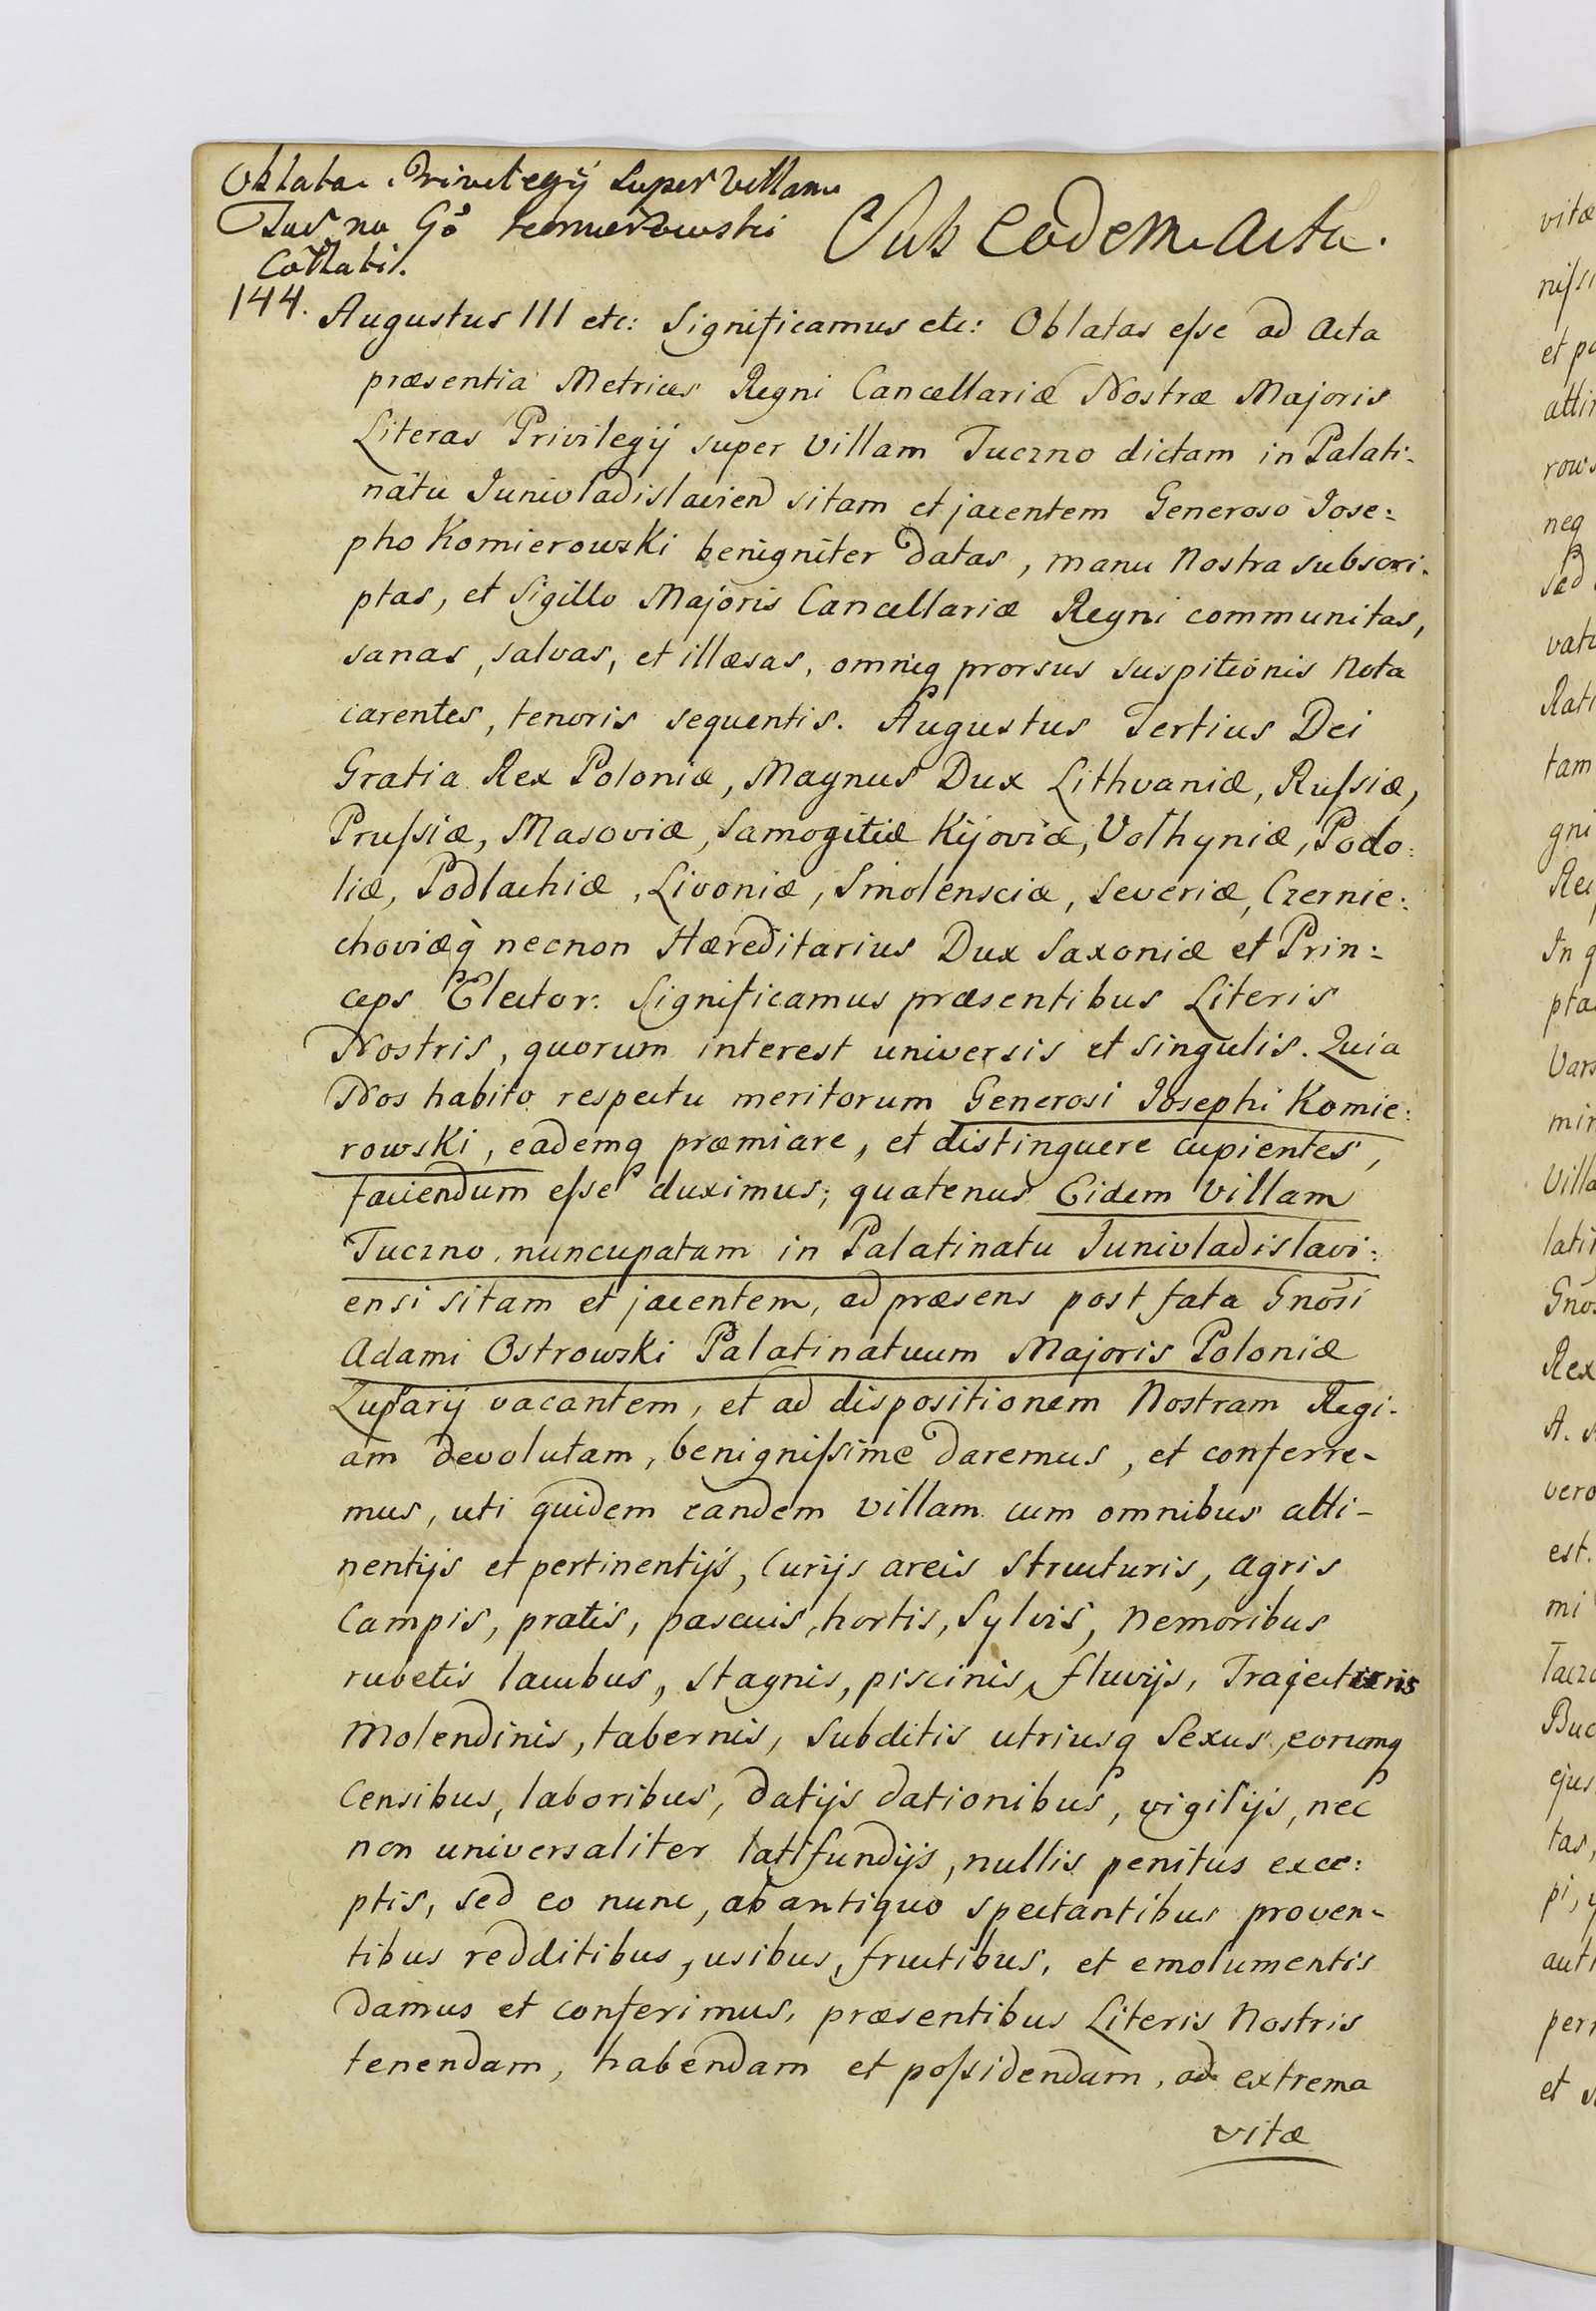 Oblata Privilegÿ super Villam
Tuczno Go Komierowski
Collati.
Sub eodem Actu.
144. Augustus III etc: Significamus etc: Oblatas eſse ad Acta
præsentia Metrices Regni Cancellariæ Nostræ Majoris
Literas Privilegÿ super Villam Tuczno dictam in Palati-
natu Junivladislavien sitam et jacentem Generoso Jose:
pho Komierowski benigniter datas, manu Nostra subscri-
ptas, et Sigillo Majoris Cancellariæ Regni communitas,
sanas, salvas, et illæsas, omniq prorsus suspitionis nota
carentes, tenoris sequentis. Augustus Tertius Dei
Gratia Rex Poloniæ, Magnus Dux Lithvaniæ, Ruſsiæ,
Pruſsiæ, Masoviæ, Samogitiæ Kijoviæ, Volhyniæ, Podo:
liæ, Podlachiæ, Livoniæ, Smolensciæ, Severiæ, Czernie:
choviæq̀ necnon Hæreditarius Dux Saxoniæ et Prin:
ceps Elector. Significamus præsentibus Literis
Nostris, quorum interest universis et singulis. Quia
Nos habito respectu meritorum Generosi Josephi Komie:
rowski, eademq præmiare, et distinguere cupientes,
faciendum eſse duximus; quatenus Eidem Villam
Tuczno nuncupatam in Palatinatu Junivladislavi:
ensi sitam et jacentem, ad præsens post fata Gnõsi
Adami Ostrowski Palatinatuum Majoris Poloniæ
Zuparÿ vacantem, et ad dispositionem Nostram Regi-
am devolutam, benigniſsime daremus, et conferre-
mus, uti quidem eandem Villam cum omnibus atti-
nentÿs et pertinentÿs, Curÿs areis structuris, agris
Campis, pratis, pascuis, hortis, Sylvis, Nemoribus
rubetis lacubus, stagnis, piscinis, fluvÿs, Trajecturis
Molendinis, tabernis, Subditis utriusq Sexus, eorumq
Censibus, laboribus, datÿs dationibus, vigilÿs, nec
non universaliter latifundÿs, nullis penitus exce:
ptis, sed eo nunc, ab antiquo spectantibus proven-
tibus redditibus, usibus, fructibus, et emolumentis
damus et conferimus, præsentibus Literis Nostris
tenendam, habendam et poſsidendam, ad extrema
vitæ